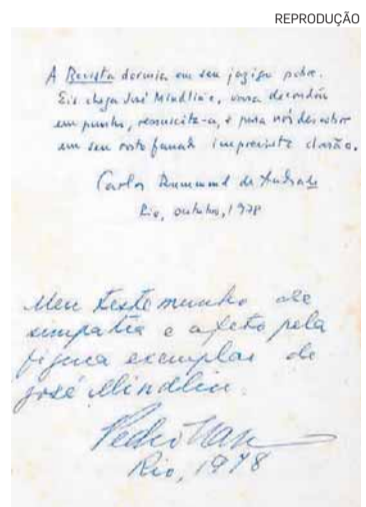 REPRODUÇÃO
A Revista dormia em seu jazigo pobre.
Eis chega José Mindlin e, vara de condão
em punho, ressuscita-a, e para nós descobre
em seu rosto fanado imprevisto clarão.
Carlos Drummond de Andrade
Rio, outubro, 1978
Meu testemunho de
simpatia e afeto pela
figura exemplar de
José Mindlin.
Pedro Nava
Rio, 1978